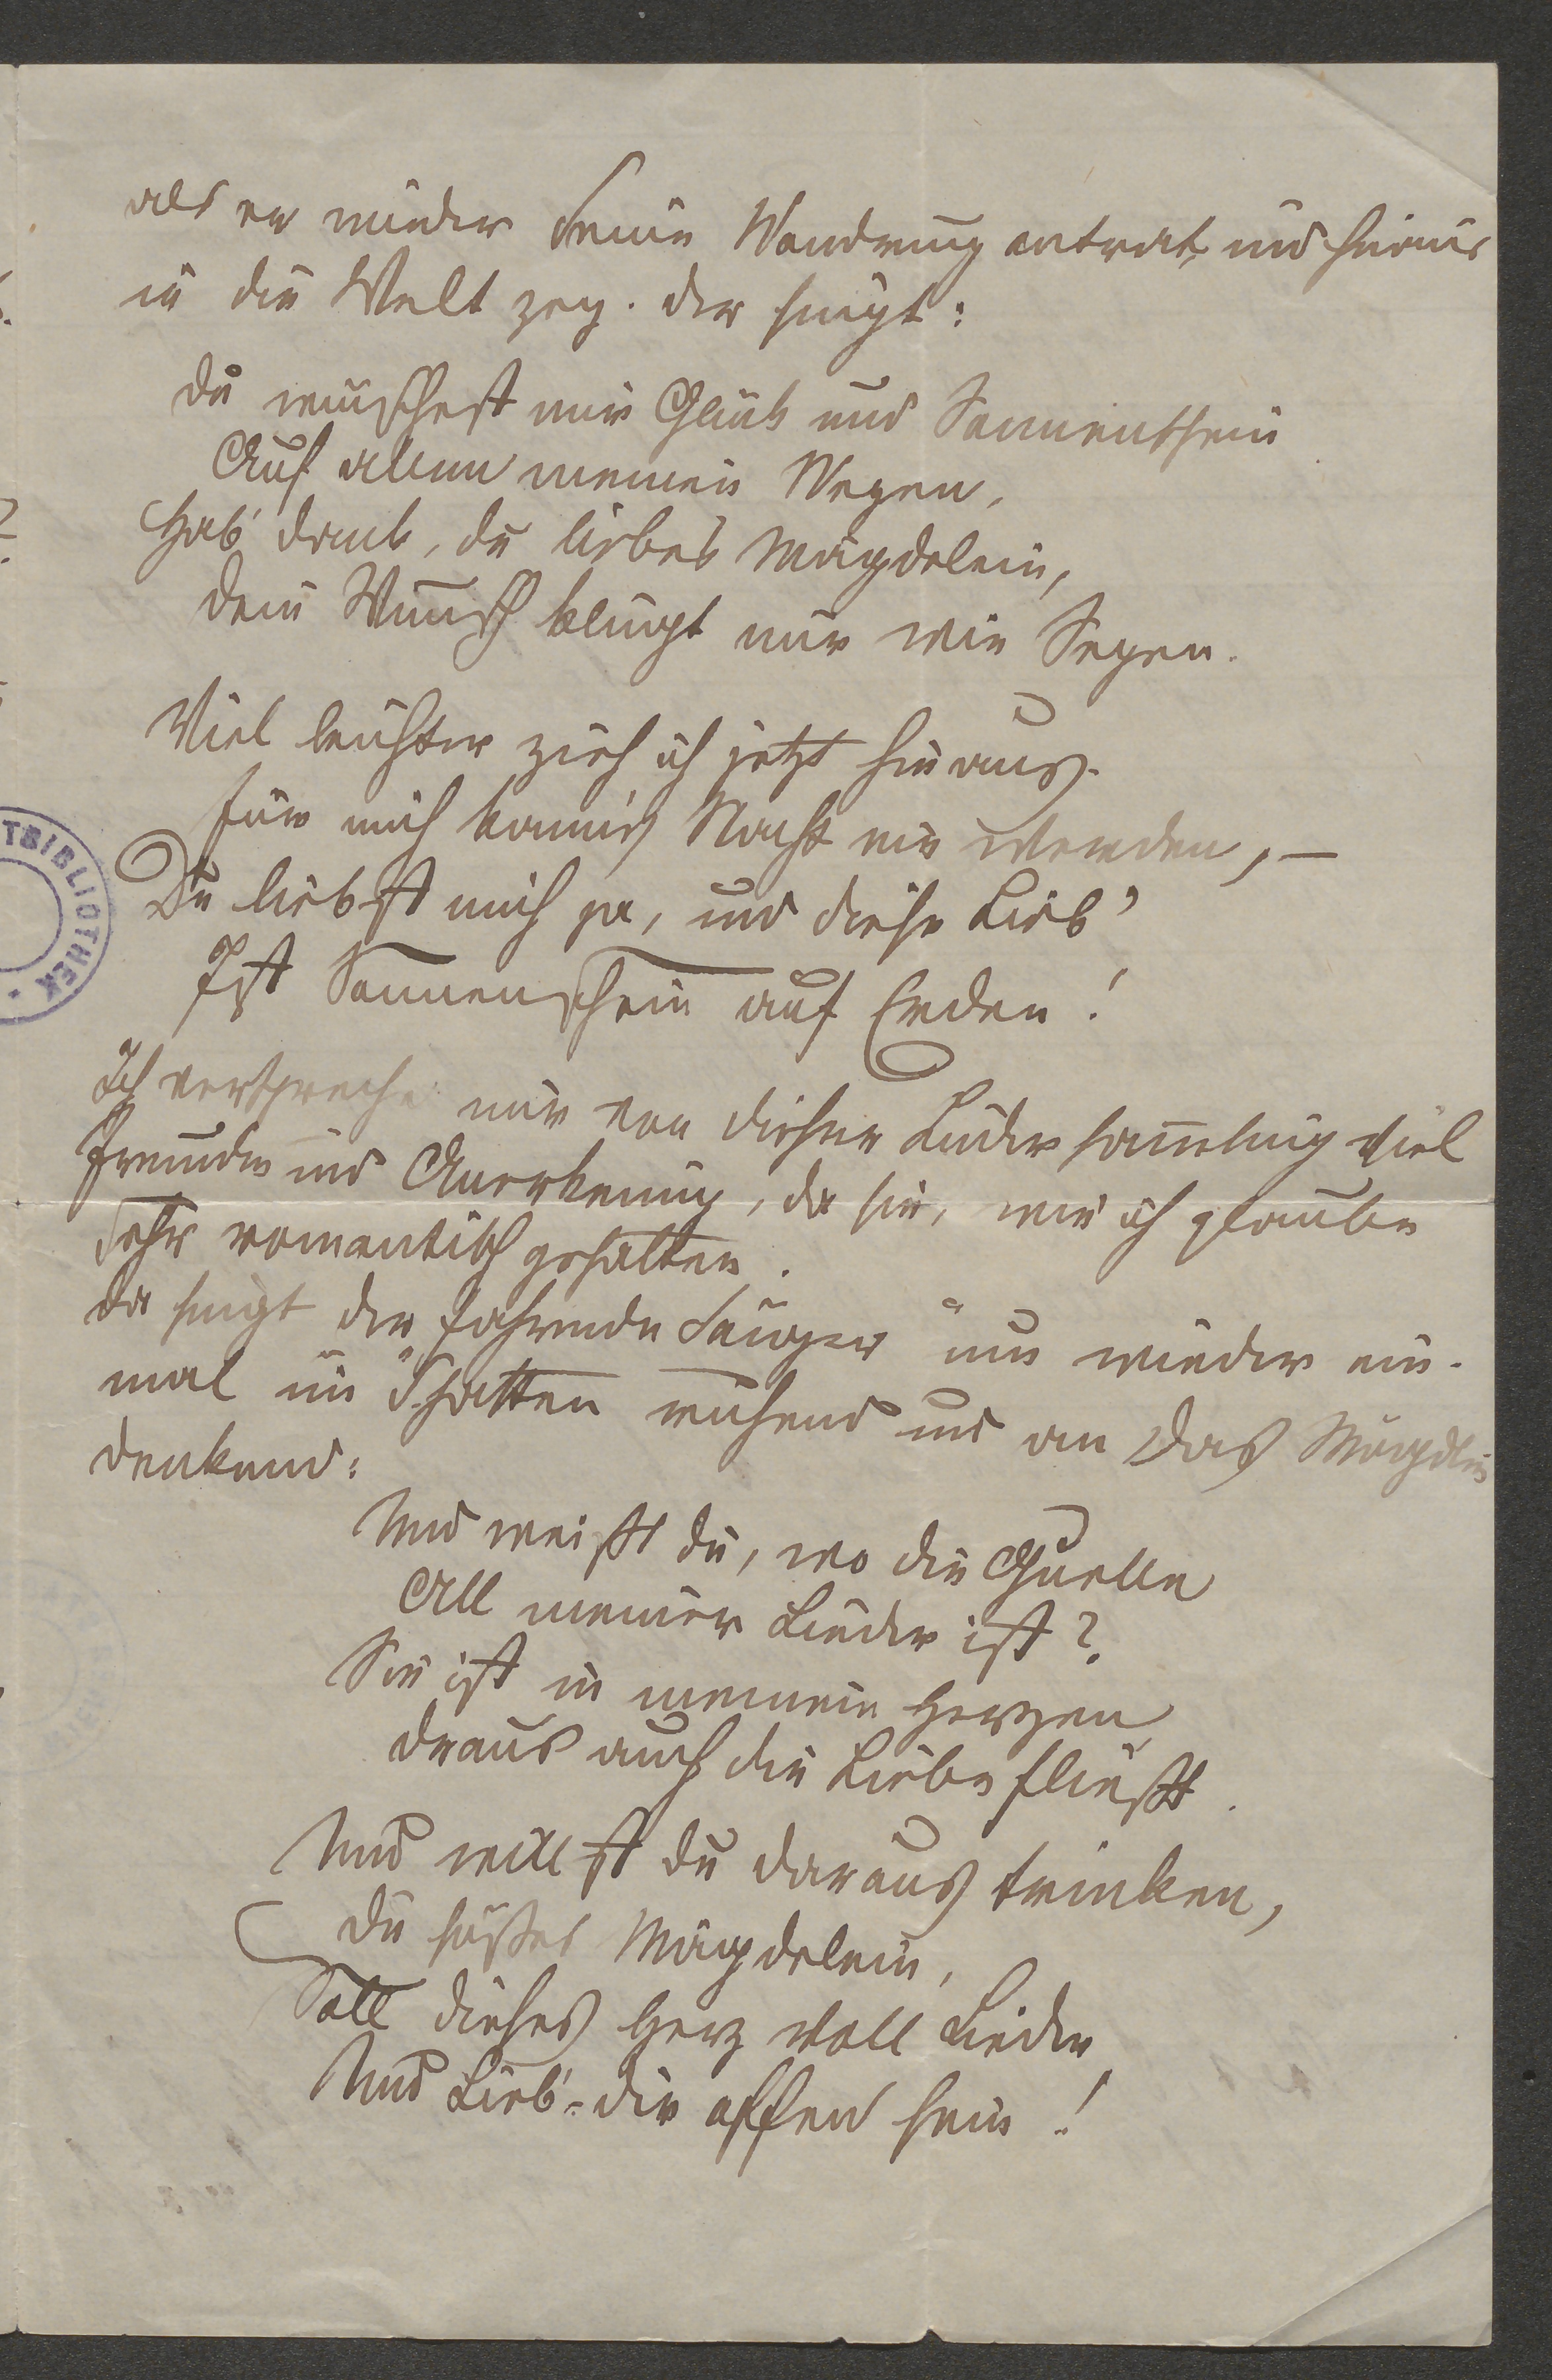 als er wieder seine Wandrung antrat, und hinaus
in die Welt zog. der singt:
du wünschest mir Glück und Sonnenschein
Auf allen meinen Wegen,
Hab' dank, du liebes Mägdelein,
dein Wunsch klingt mir wie Segen.
Viel leichter zieh ich jetzt hinaus.
für mich kann's Nacht nie werden, –
Du liebst mich ja, und diese Lieb'
Ist Sonnenschein auf Erden!
Ich verspreche mir von dieser Liedersam̄elung viel
Freude und Anerkennung, da sie, wie ich glaube
sehr romantisch gehalten.
da singt der "fahrende Sänger" nun wieder ein-
mal im Schatten ruhend und an das Mägdlein
denkend:
Und weißt du, wo die Quelle
All meiner Lieder ist?
Sie ist in meinem Herzen
draus auch die Liebe fließt.
Und willst du daraus trinken,
du süßes Mägdelein,
Soll dieses Herz voll Lieder
Und Lieb' dir offen sein!
TSBIBLIOTHEK